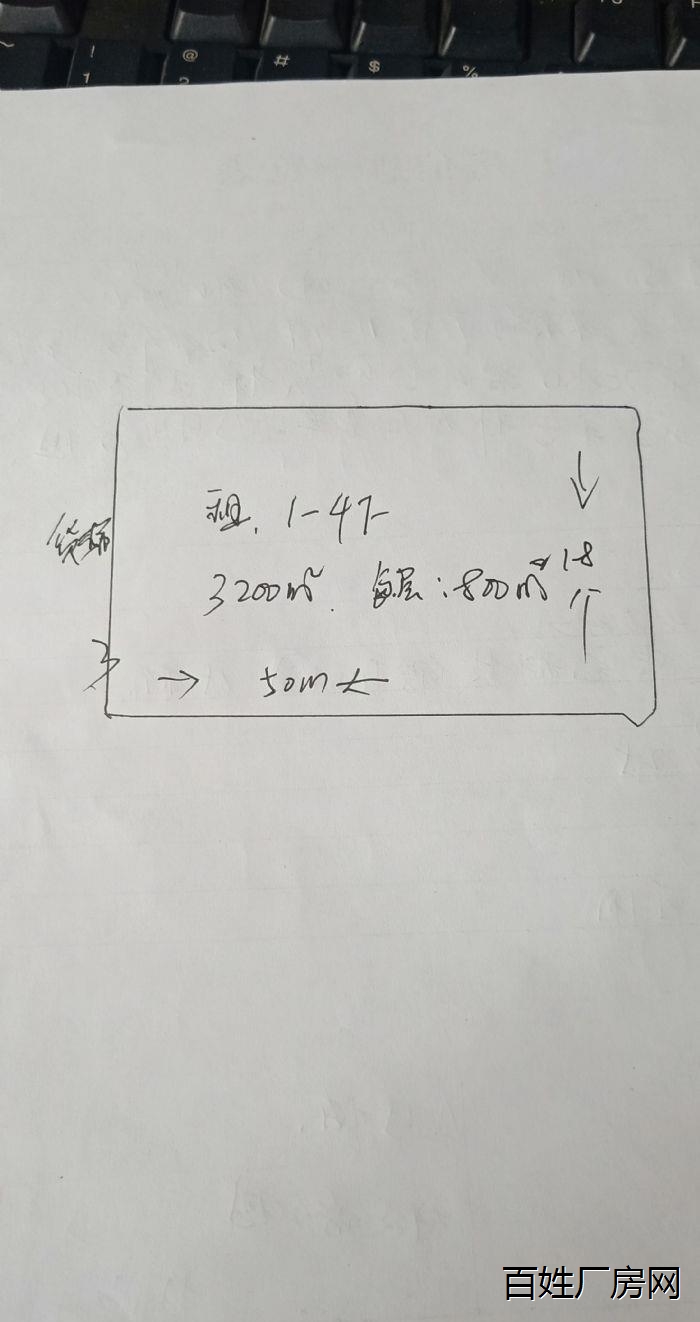 ~ ! @ # $ %
1 2
租. 1-4F
货梯
3200m² 每层:800m² 18
→ 50m长
百姓厂房网